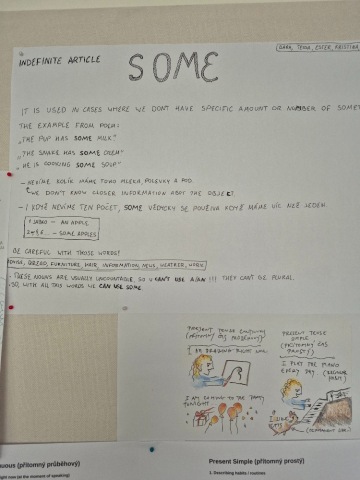 INDEFINITE ARTICLE
SOME
IT IS USED IN CASES WHERE WE DONT HAVE SPECIFIC AMOUNT OR NUMBER OF SOMET
THE EXAMPLE FROM POEM:
„THE PUP HAS SOME MILK"
„THE SNAKE HAS SOME
„HE IS COOKING SOME SOUP"
– NEVÍME KOLIK MÁME TOHO MLÉKA, POLÉVKY A POD.
WE DON'T KNOW CLOSER INFORMATION ABOUT THE OBJECT
– I KDYŽ NEVÍME TEN POČET, SOME VŽDYCKY SE POUŽÍVÁ KDYŽ MÁME VÍC NEŽ JEDEN.
1 JABKO – AN APPLE
... – SOME APPLES
BE CAREFUL WITH THOSE WORDS!
BREAD, FURNITURE, HAIR, INFORMATION, NEWS, WEATHER, WORK
– THESE NOUNS ARE USUALLY UNCOUNTABLE, SO U CAN'T USE A/AN!!! THEY CAN'T BE PLURAL.
SO, WITH ALL THIS WORDS WE CAN USE SOME.
PRESENT TENSE
(PŘÍTOMNÝ ČAS PRŮBĚHOVÝ)
I AM READING RIGHT NOW.
I AM COMING TO THE PARTY TONIGHT
PRESENT TENSE SIMPLE
(PŘÍTOMNÝ ČAS PROSTÝ)
I PLAY THE PIANO EVERY DAY
I LIKE
uous (přítomný průběhový)
ight now (at the moment of speaking)
Present Simple (přítomný prostý)
1. Describing habits / routines